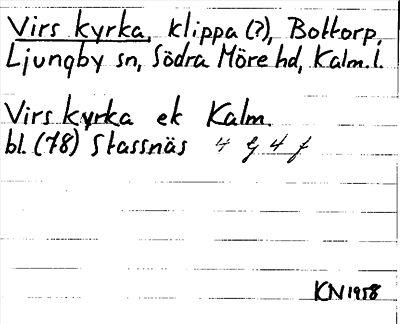 Virs kyrka, klippa (?), Bottorp,
Ljungby sn, Södra Möre hd, Kalm. l.
Virs kyrka ek Kalm.
bl. (78) Stassnäs 4 G 4 f
KN 1958